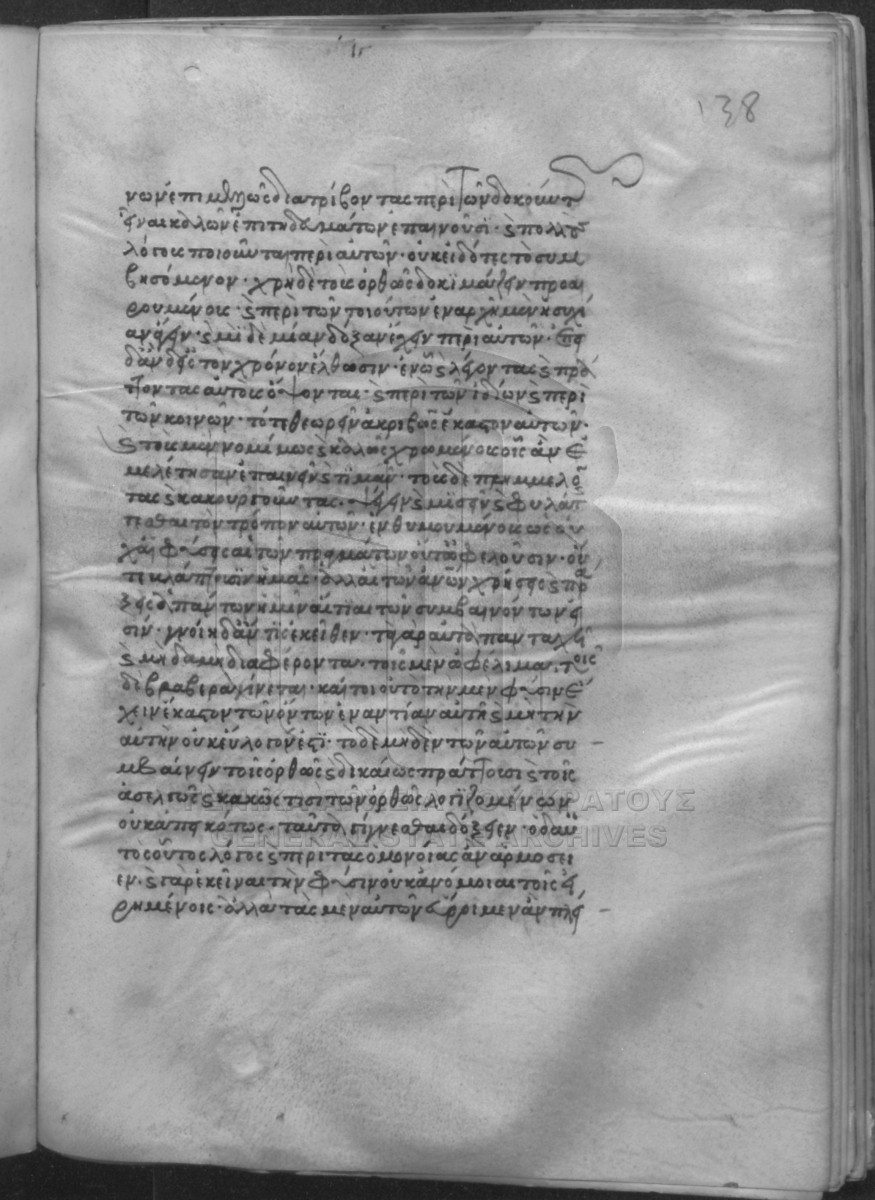 νων ἐπιμελῶς διατρίβοντας περί τι τῶν δοκούντ
εἶναι καλῶν ἐπιτηδευμάτων ἐπαινοῦσι· καὶ πολλοὺς
λόγους ποιοῦνται περὶ αὐτῶν· οὐκ εἰδότες τὸ συμ
βησόμενον· χρὴ δὲ τοὺς ὀρθῶς δοκιμάζειν προαι
ρουμένους· καὶ περὶ τῶν τοιούτων ἐν ἀρχῇ μὲν ἡσυχί
αν ἄγειν· καὶ μηδεμίαν δόξαν ἔχειν περὶ αὐτῶν· ἐπει
δὰν δ' εἰς τὸν χρόνον ἔλθωσιν· ἐν ᾧ καὶ λέγοντας καὶ πρά
ττοντας αὐτοὺς ὄψονται· καὶ περὶ τῶν ἰδίων καὶ περὶ
τῶν κοινῶν· τότε θεωρεῖν ἀκριβῶς ἕκαστον αὐτῶν·
καὶ τοὺς μὲν νομίμως καὶ καλῶς χρωμένους οἷς ἂν ἐ
μελέτησαν ἐπαινεῖν καὶ τιμᾶν· τοὺς δὲ πλημμελοῦν
τας καὶ κακουργοῦντας· ψέγειν καὶ μισεῖν καὶ φυλάτ
τεσθαι τὸν τρόπον αὐτῶν· ἐνθυμουμένους ὡς οὐ
χ' αἱ φύσεις αἱ τῶν πραγμάτων οὔτ' ὠφελοῦσιν· οὔ
τε βλάπτουσιν ἡμᾶς· ἀλλ' αἱ τῶν ἀνων χρήσεις καὶ πρά
ξεις ἁπάντων ἡμῖν αἴτιαι τῶν συμβαινόντων εἰ
σίν· γνοίη δ' ἄν τις ἐκεῖθεν· τὰ γὰρ αὐτὰ πανταχῆ
καὶ μηδαμῆ διαφέροντα· τοῖς μὲν ὠφέλιμα· τοῖς
δὲ βλαβερὰ γίνεται· καίτοι οὐ τὸ τὴν μὲν φύσιν ἔ
χειν ἕκαστον τῶν ὄντων ἐναντίαν αὑτῇ καὶ μὴ τὴν
αὐτὴν οὐκ εὔλογόν ἐστι· τὸ δὲ μηδὲν τῶν αὐτῶν συ
μβαίνειν τοῖς ὀρθῶς καὶ δικαίως πράττουσι καὶ τοῖς
ἀσελγῶς καὶ κακῶς τισι τῶν ὀρθῶς λογιζομένων
οὐκ ἀπεικότως· ταῦτα γίγνεσθαι δόξειεν· ὁ δ' αὐ
τὸς οὗτος λόγος καὶ περὶ τὰς ὁμονοίας ἂν ἁρμόσει
εν· καὶ γὰρ ἐκεῖναι τὴν φύσιν οὐκ ἀνόμοιαι τοῖς εἰ
ρημένοις· ἀλλὰ τὰς μὲν αὐτῶν εὕροιμεν ἂν πλεί
138
ΓΕΝΙΚΑ ΑΡΧΕΙΑ ΤΟΥ ΚΡΑΤΟΥΣ
GENERAL STATE ARCHIVES